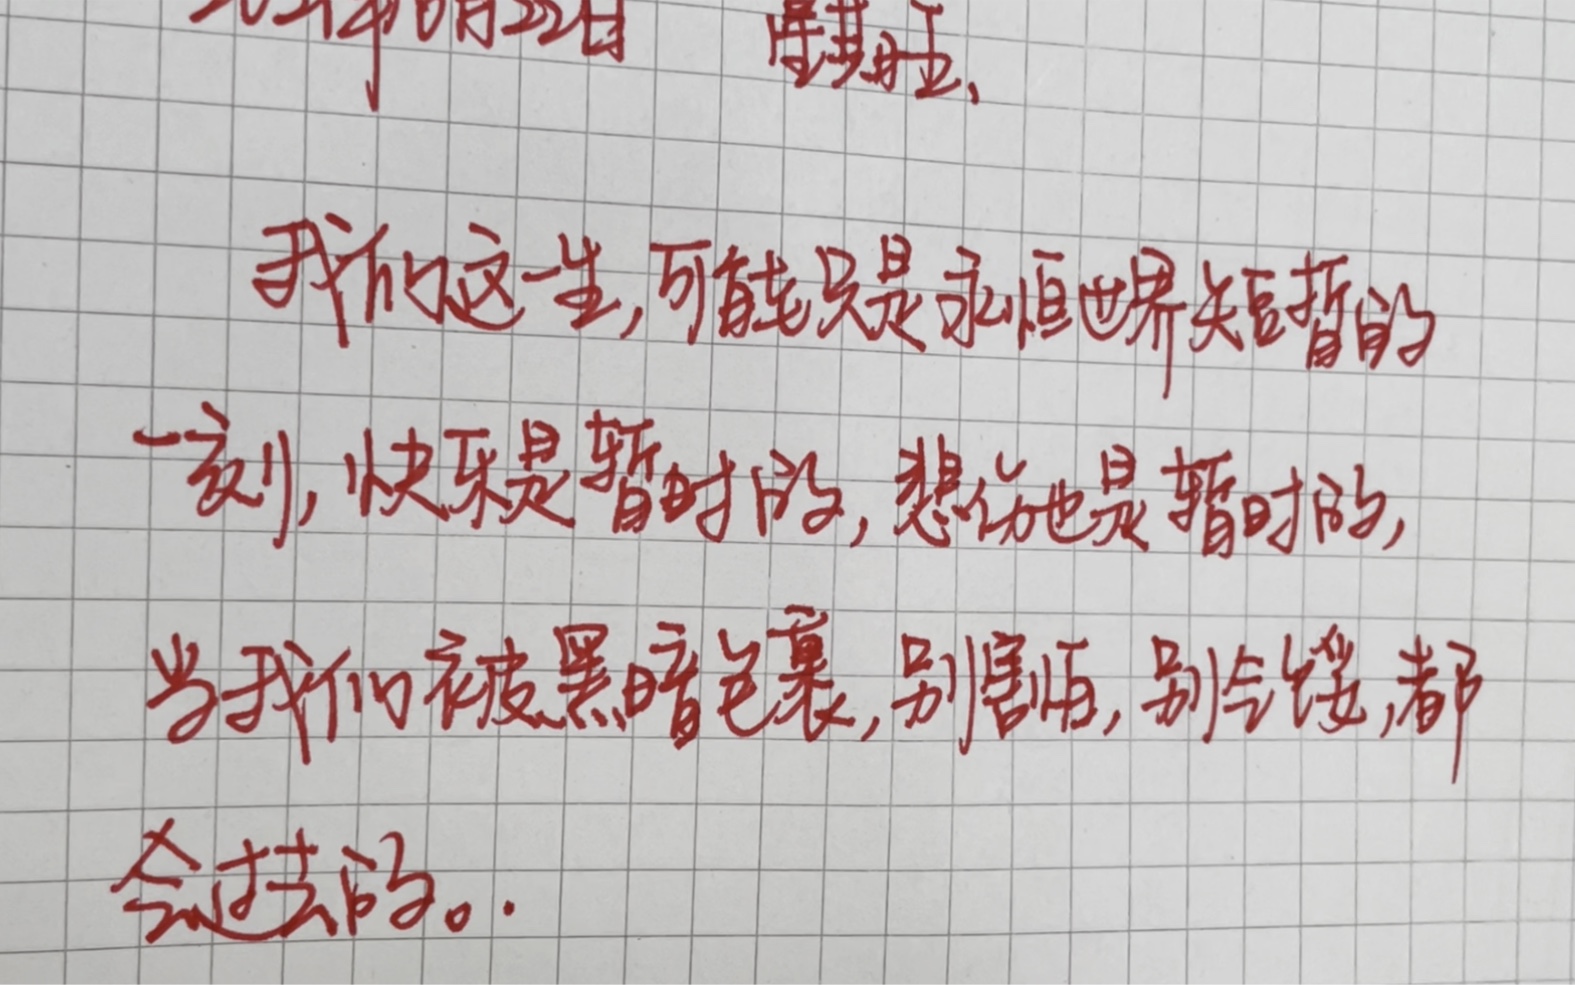 月22日
我们这一生,可能只是永恒世界短暂的
一刻,快乐是暂时的,悲伤也是暂时的,
当我们被黑暗包裹,别害怕,别气馁,都
会过去的。.